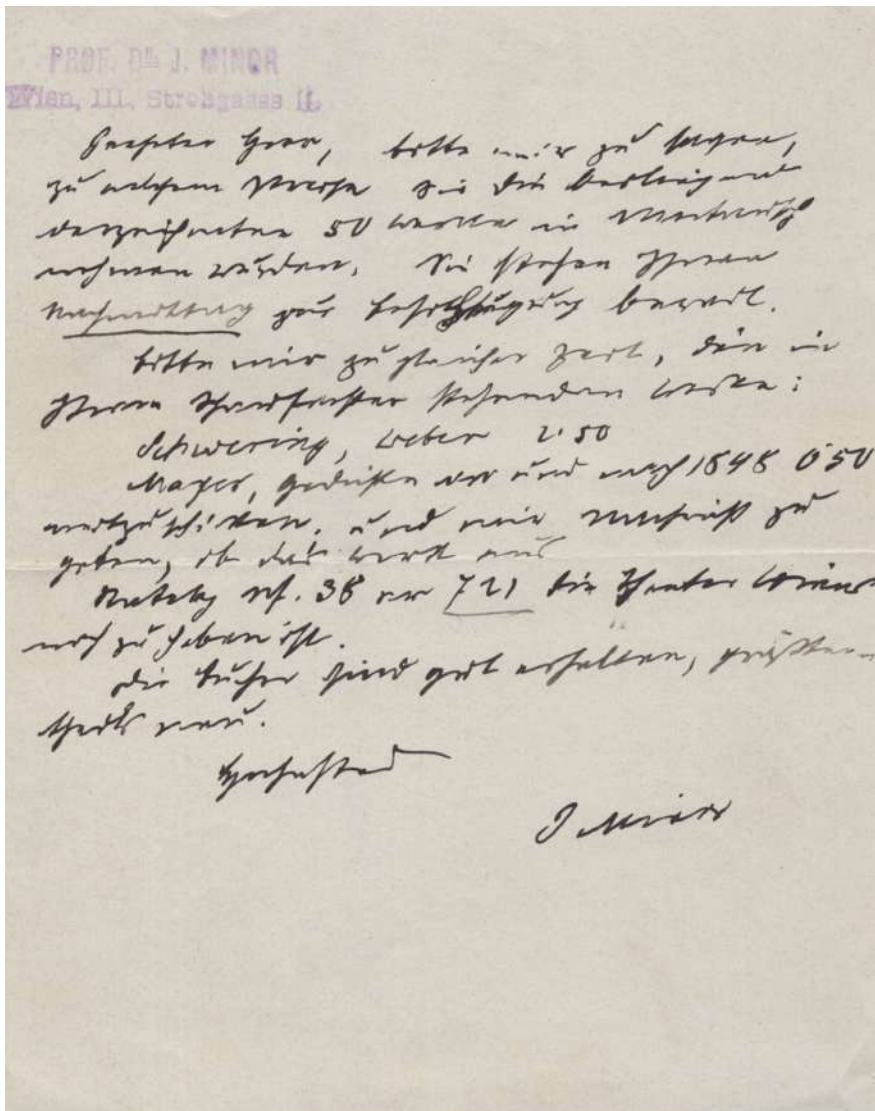 PROF. DR. J. MINOR
Wien, III. Strohgasse 11.
Geehrter Herr, bitte mir zu sagen,
zu welchem Preise Sie die beiliegend
verzeichneten 50 Werke in
nehmen würden. Sie stehen Ihnen
Nachmittag zur Besichtigung bereit.
bitte mir zu gleicher Zeit, die in
Ihrem Schaufenster stehenden Werke:
Schwering, Weber 2·50
Mayer, Gedichte vor und nach 1848 0·50
mitzuschicken, und mir Nachricht zu
geben, ob das Werk aus
Katalog Nf. 38 nr 721 die Theater Wiens
noch zu haben ist.
die Bücher sind gut erhalten, größten-
theils neu.
Hochachtend
J Minor